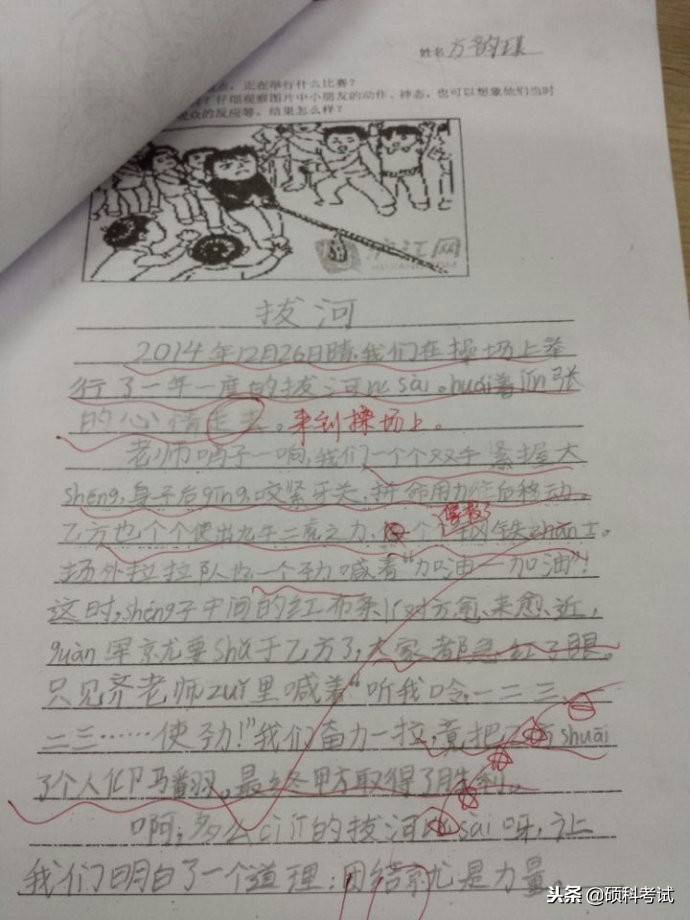 姓名 方韵琪
，正在举行什么比赛？
？仔细观察图片中小朋友的动作、神态，也可以想象他们当时
观众的反应等。结果怎么样？
沪江网
拔河
2014年12月26日晴，我们在操场上举
行了一年一度的拔河bǐ sài。huái着jǐn张
的心情走去。来到操场上。
老师哨子一响，我们一个个双手紧握大
shéng，身子后qīng，咬紧牙关，拼命用力往后移动。
乙方也个个使出九牛二虎之力，个个像钢铁zhàn士。
场外拉拉队也一个劲喊着“加油—加油”！
这时，shéng子中间的红布条儿对方愈来愈近，
guàn军就要shǔ于乙方了，大家都急红了眼。
只见齐老师zuǐ里喊着“听我口令，一二三、一
二三……使劲！”我们奋力一拉，竟把乙方shuāi
了个人仰马翻，最终甲方取得了胜利。
啊，多么cì jī的拔河bǐ sài呀，让
我们明白了一个道理：团结就是力量。
头条 @硕科考试